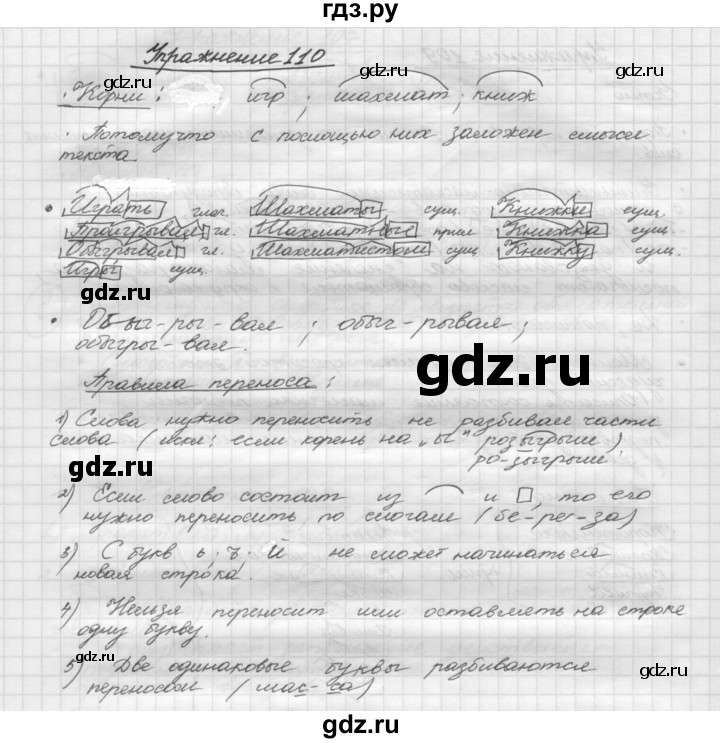 гдз.ру
Упражнение 110
gdz.ru gdz.ru
· Корни: игр; шахмат; книж
gdz.ru gdz.ru
· Потомучто с помощью них заложен смысл
текста.
gdz.ru gdz.ru
· Играть глаг. Шахматы сущ. Книжки сущ.
Проигрывал гл. Шахматные прил Книжка сущ.
Обыгрывал гл. Шахматистом сущ Книжку сущ.
Игры сущ.
gdz.ru gdz.ru
· Обы-гры-вал; обыг-рывал;
обыгры-вал.
gdz.ru
Правила переноса:
1) Слова нужно переносить не разбивая части
слова (искл: если корень на „ы" розыгрыш)
ро-зыгрыш.
gdz.ru gdz.ru
2) Если слово состоит из и , то его
нужно переносить по слогам (бе-рез-а)
gdz.ru gdz.ru
3) С букв ь, ъ, й не может начинаться
новая строка.
gdz.ru gdz.ru
4) Нельзя переносит или оставлять на строке
одну букву.
gdz.ru gdz.ru
5) Две одинаковые буквы разбиваются
переносом (мас-са)
gdz.ru gdz.ru